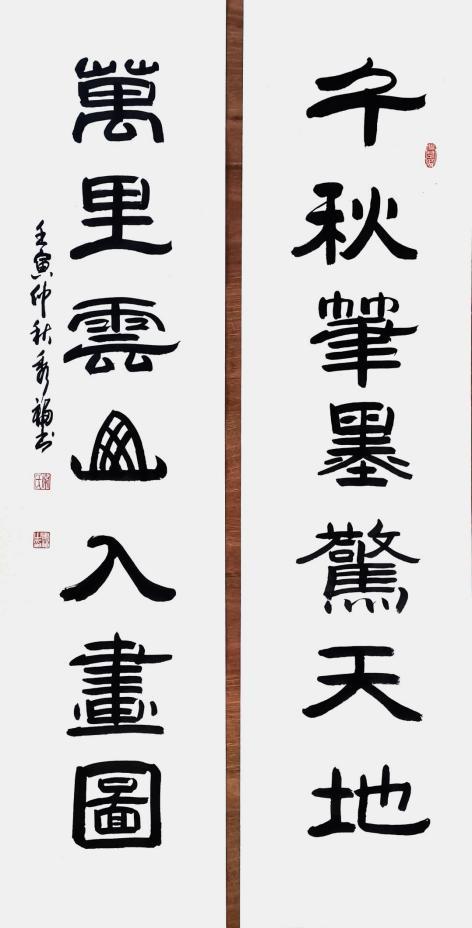 千秋筆墨驚天地
萬里雲山入畫圖
壬寅仲秋秀福書